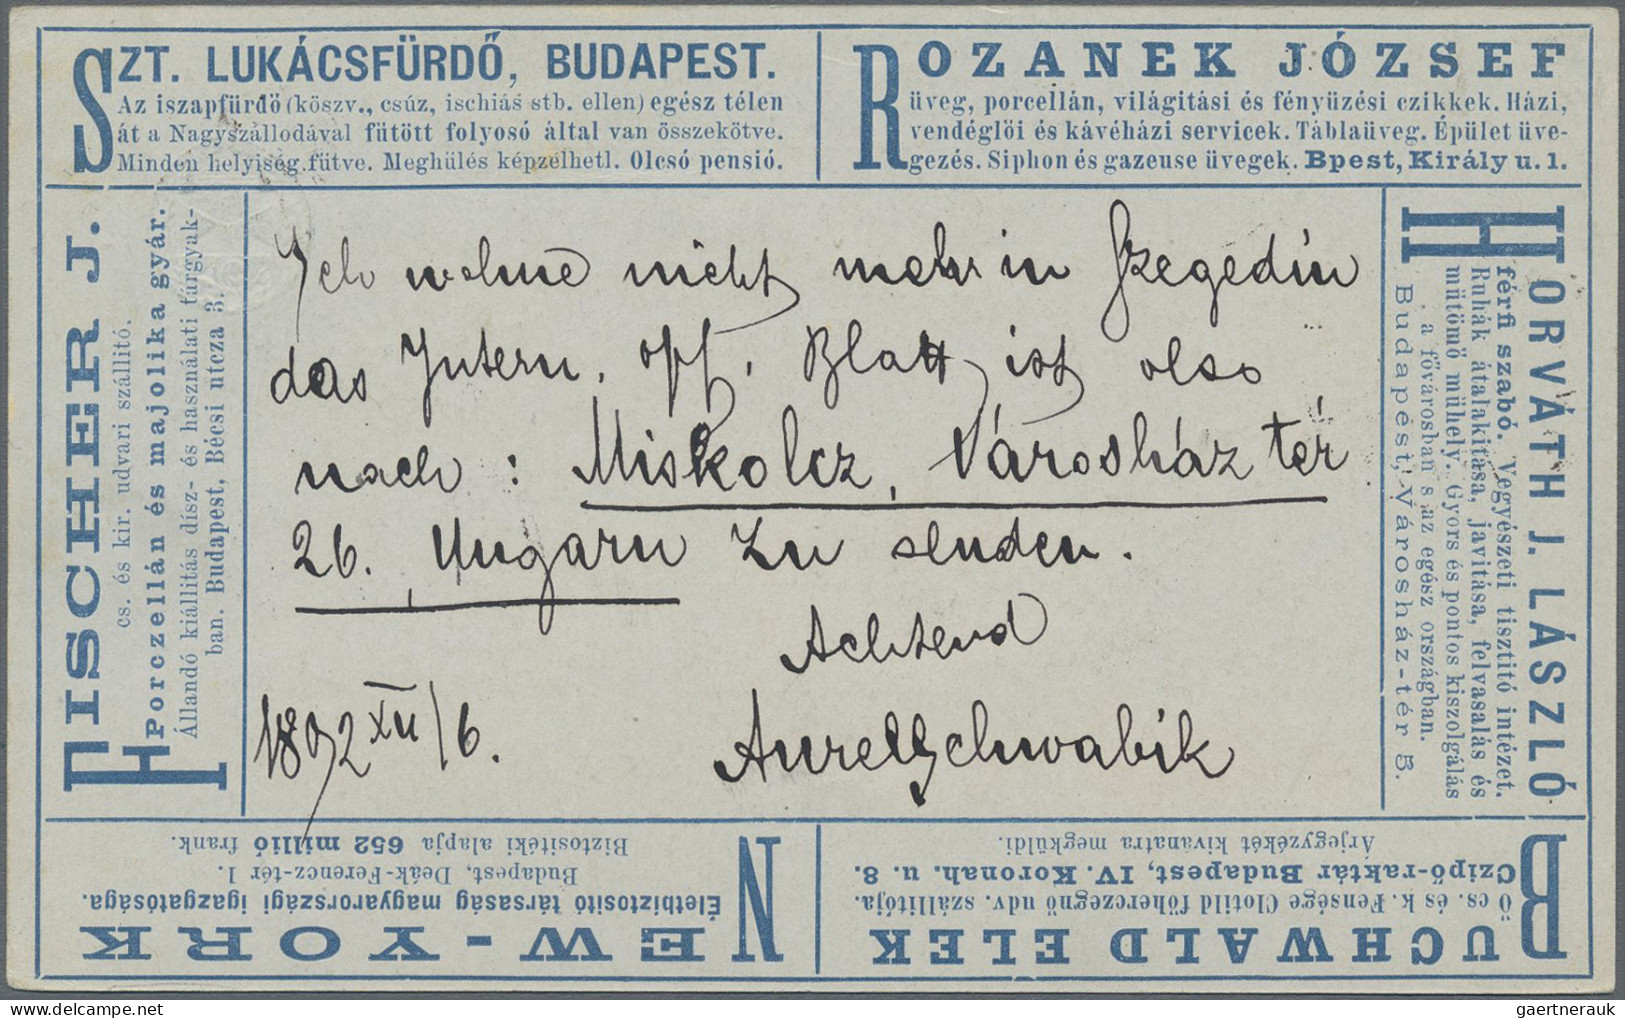 SZT. LUKÁCSFÜRDŐ, BUDAPEST.
Az iszapfürdő (köszv., csúz, ischiás stb. ellen) egész télen
át a Nagyszállodával fütött folyosó által van összekötve.
Minden helyiség fütve. Meghülés képzelhetl. Olcsó pensió.
ROZANEK JÓZSEF
üveg, porcellán, világitási és fényüzési czikkek. Házi,
vendéglöi és kávéházi servicek. Táblaüveg. Épület üve-
gezés. Siphon és gazeuse üvegek. Bpest, Király u. 1.
FISCHER J.
cs. és kir. udvari szállitó.
Porczellán és majolika gyár.
Állandó kiállitás disz- és használati tárgyak-
ban. Budapest, Bécsi utcza 3.
Ich wohne nicht mehr in Szegedin
das Intern. opf. Blatt ist also
nach: Miskolcz, Városház tér
26. Ungarn zu senden.
Achtend
1892 XII/6.
Aurel Schwabik
HORVÁTH J. LÁSZLÓ
férfi szabó. Vegyészeti tisztitó intézet.
Ruhák átalakitása, javitása, felvasalás és
mütömő mühely. Gyors és pontos kiszolgálás
a fővárosban s az egész országban.
Budapest, Városház-tér 5.
NEW-YORK
Életbiztositó társaság magyarországi igazgatósága.
Budapest, Deák-Ferencz-tér 1.
Biztositéki alapja 652 millió frank.
BUCHWALD ELEK
Ő cs. és k. Fensége Clotild főherczegnő udv. szállitója.
Czipő-raktár Budapest, IV. Koronah. u. 8.
Árjegyzékét kivánatra megküldi.
gaertnerauk